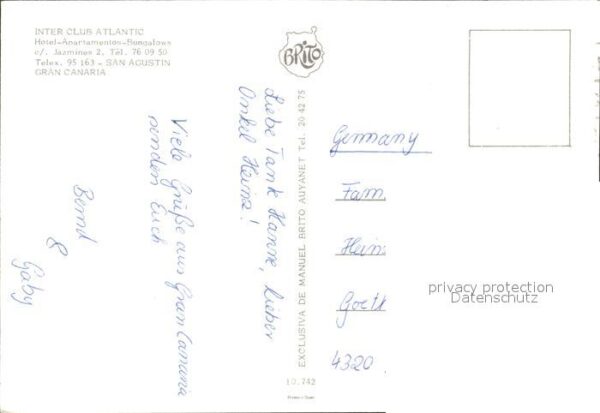 INTER CLUB ATLANTIC
Hotel-Apartamentos-Bungalows
c/. Jazmines 2. Tel. 76 09 50
Telex. 95 163 - SAN AGUSTIN
GRAN CANARIA
BRITO
Liebe Tante Hanne, Lieber
Onkel Heinz!
Viele Grüße aus Gran Canaria
senden Euch
Bernd
&
Gaby
EXCLUSIVA DE MANUEL BRITO AUYANET Tel. 20 42 75
10.742
Germany
Fam.
Hein
Goeth
4320
privacy protection
Datenschutz